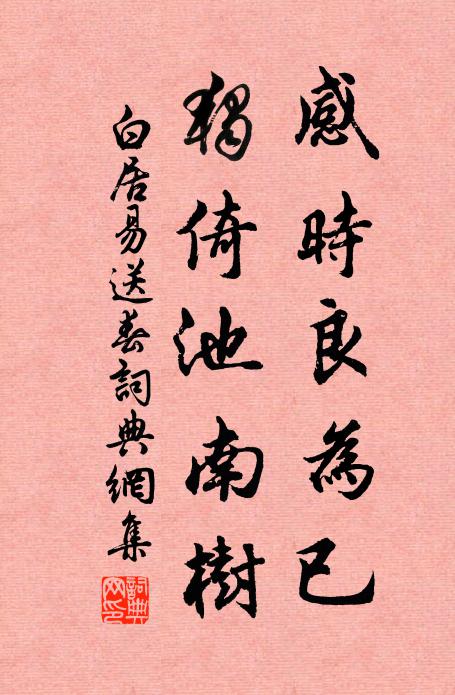 感時良為已
獨倚池南樹
白居易送春詞典網集
詞典網印